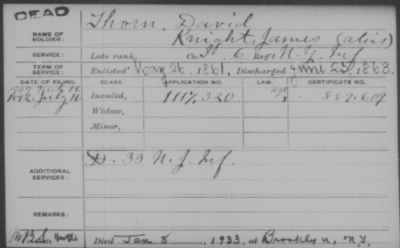 DEAD
NAME OF SOLDIER: Thorn, David
Knight, James (alias)
SERVICE: Late rank, Co. 6 Reg't N.Y. Inf
TERM OF SERVICE: Enlisted 26, 1861, Discharged June 23, 1863.
DATE OF FILING. CLASS. APPLICATION NO. LAW. CERTIFICATE NO.
1892, July 16 Invalid, 1117.320 887.609
Widow,
Minor,
ADDITIONAL SERVICES: D. 33 N.J. Inf.
REMARKS:
Died Jan 8, 1933, at Brooklyn, N.Y.